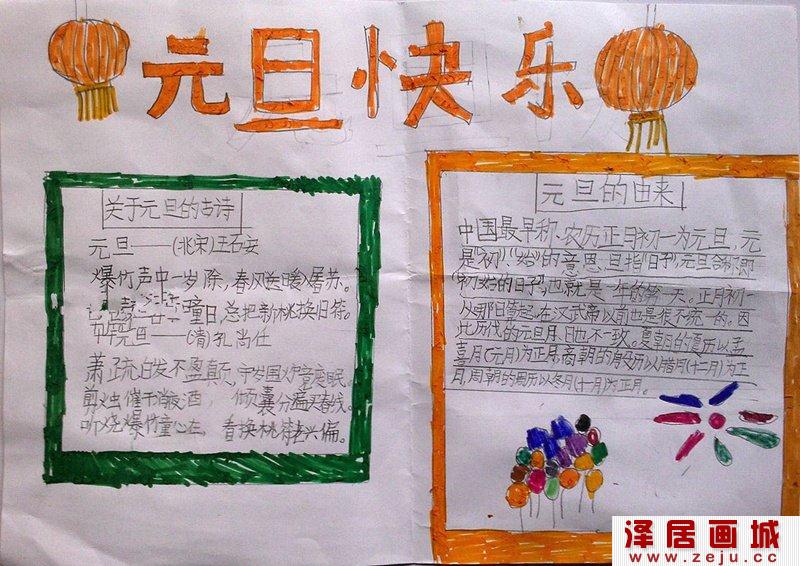 元旦快乐
关于元旦的古诗
元旦——(北宋)王石安
爆竹声中一岁除,春风送暖入屠苏。
曈日,总把新桃换旧符。
元旦——(清)孔尚任
萧疏白发不盈颠,守岁围炉竟废眠。
剪烛催干消夜酒,倾囊分遍买春钱。
听烧爆竹童心在,看换桃符老兴偏。
元旦的由来
中国最早称农历正月初一为元旦,元
是“初”、“始”的意思,旦指“日子”,元旦合称即
“初始的日子”,也就是一年的第一天。正月初一
从哪日算起,在汉武帝以前也是很不统一的。因
此历代的元旦月、日也不一致。夏朝的夏历以孟
喜月(元月)为正月,商朝的殷历以腊月(十二月)为正
月,周朝的周历以冬月(十一月)为正月。
泽居画城
www.zeju.cc